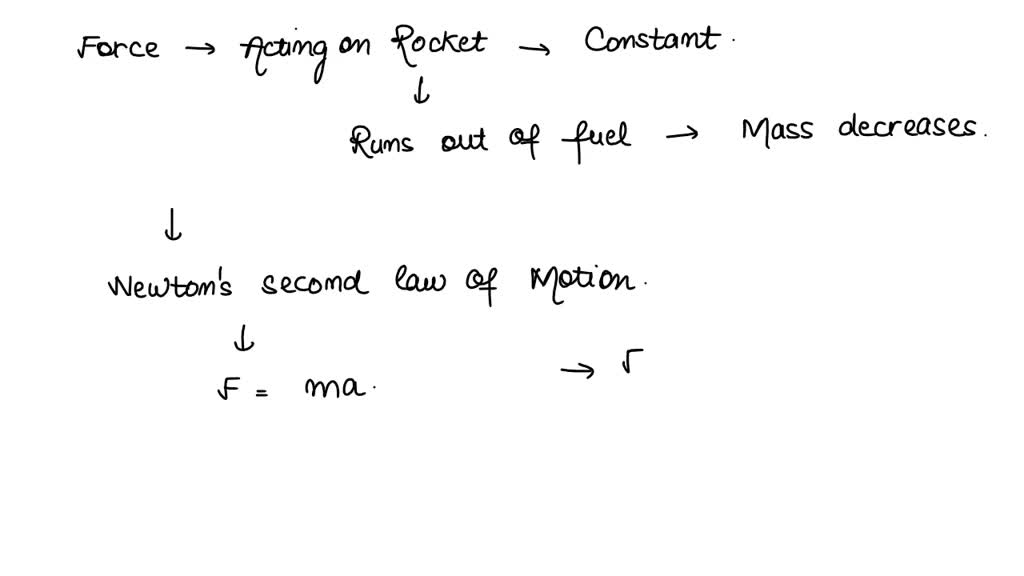 Force → Acting on Rocket → Constant.
↓
Runs out of fuel → Mass decreases.
↓
Newton's second law of Motion.
↓
F = ma. →